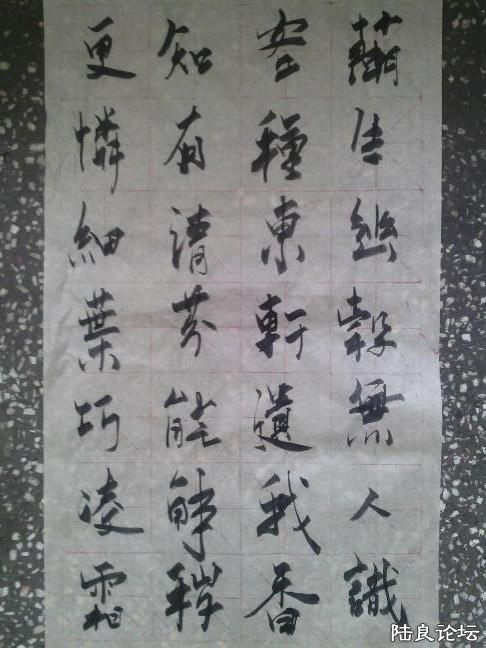 蘭生幽穀無人識
客種東軒遺我香
知有清芬能解穢
更憐細葉巧凌霜
陆良论坛